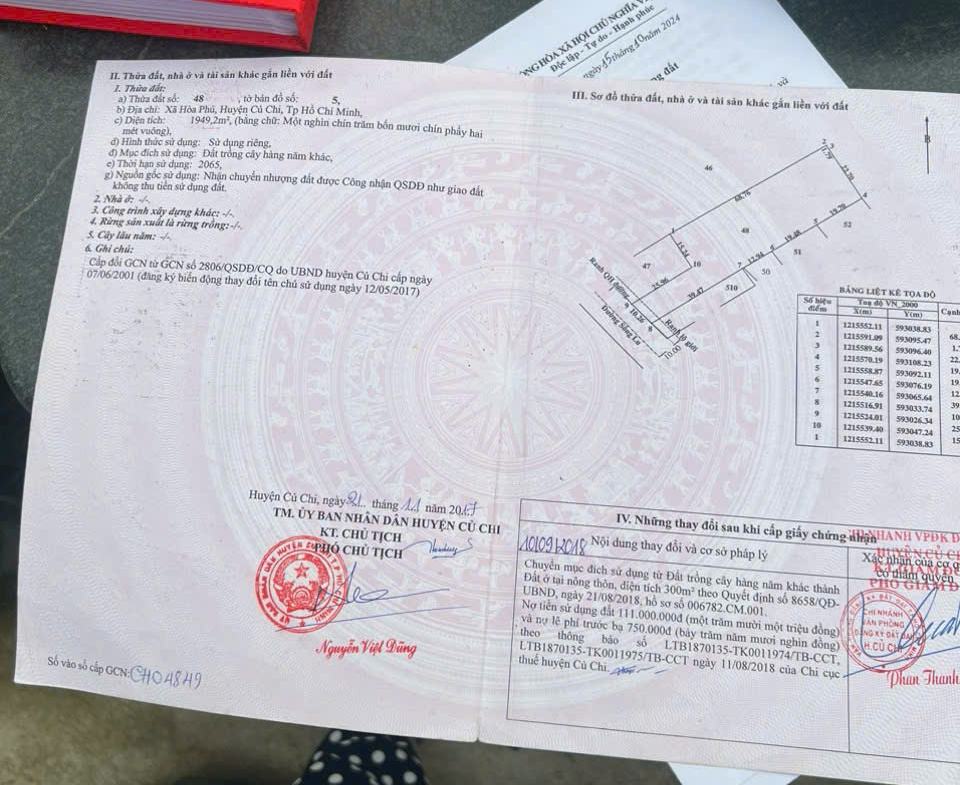 NG HÒA XÃ HỘI CHỦ NGHĨA V
Độc lập - Tự do - Hạnh phúc
ngày 15 tháng 10 năm 2024
II. Thửa đất, nhà ở và tài sản khác gắn liền với đất
1. Thửa đất:
a) Thửa đất số: 48 , tờ bản đồ số: 5,
b) Địa chỉ: Xã Hòa Phú, Huyện Củ Chi, Tp Hồ Chí Minh,
c) Diện tích: 1949,2m², (bằng chữ: Một nghìn chín trăm bốn mươi chín phẩy hai
mét vuông),
d) Hình thức sử dụng: Sử dụng riêng,
đ) Mục đích sử dụng: Đất trồng cây hàng năm khác,
e) Thời hạn sử dụng: 2065,
g) Nguồn gốc sử dụng: Nhận chuyển nhượng đất được Công nhận QSDĐ như giao đất
không thu tiền sử dụng đất.
2. Nhà ở: -/-.
3. Công trình xây dựng khác: -/-.
4. Rừng sản xuất là rừng trồng:-/-.
5. Cây lâu năm: -/-.
6. Ghi chú:
Cấp đổi GCN từ GCN số 2806/QSDĐ/CQ do UBND huyện Củ Chi cấp ngày
07/06/2001 (đăng ký biến động thay đổi tên chủ sử dụng ngày 12/05/2017)
Huyện Củ Chi, ngày 21 tháng 11 năm 2017
TM. ỦY BAN NHÂN DÂN HUYỆN CỦ CHI
KT. CHỦ TỊCH
PHÓ CHỦ TỊCH
Nguyễn Việt Dũng
Số vào sổ cấp GCN: CH04849
III. Sơ đồ thửa đất, nhà ở và tài sản khác gắn liền với đất
B
46
2
3
1,79
22,70
68,76
4
48
19,70
52
1
5
15,24
19,48
51
10
6
47
12,94
50
7
25,96
510
39,47
Ranh QH đường
9
10,26
8
Ranh lộ giới
Đường Sông Lu
10.00
BẢNG LIỆT KÊ TỌA ĐỘ
Số hiệu điểm Toạ độ VN_2000 Cạnh
X(m) Y(m)
1 1215552.11 593038.83
2 1215591.09 593095.47 68.
3 1215589.56 593096.40 1.
4 1215570.19 593108.23 22.
5 1215558.87 593092.11 19.
6 1215547.65 593076.19 19.
7 1215540.16 593065.64 12.
8 1215516.91 593033.74 39.
9 1215524.01 593026.34 10
10 1215539.40 593047.24 25
1 1215552.11 593038.83 15
IV. Những thay đổi sau khi cấp giấy chứng nhận
10/09/2018 Nội dung thay đổi và cơ sở pháp lý
Xác nhận của cơ q
có thẩm quyền
Chuyển mục đích sử dụng từ Đất trồng cây hàng năm khác thành
Đất ở tại nông thôn, diện tích 300m² theo Quyết định số 8658/QĐ-
UBND, ngày 21/08/2018, hồ sơ số 006782.CM.001.
Nợ tiền sử dụng đất 111.000.000đ (một trăm mười một triệu đồng)
và nợ lệ phí trước bạ 750.000đ (bảy trăm năm mươi nghìn đồng)
theo thông báo số LTB1870135-TK0011974/TB-CCT,
LTB1870135-TK0011975/TB-CCT ngày 11/08/2018 của Chi cục
thuế huyện Củ Chi.
NHANH VPĐK Đ
HUYỆN CỦ C
PHÓ GIÁM Đ
CHI NHÁNH
VĂN PHÒNG
ĐĂNG KÝ ĐẤT ĐAI
H.CỦ CHI
Phan Thanh